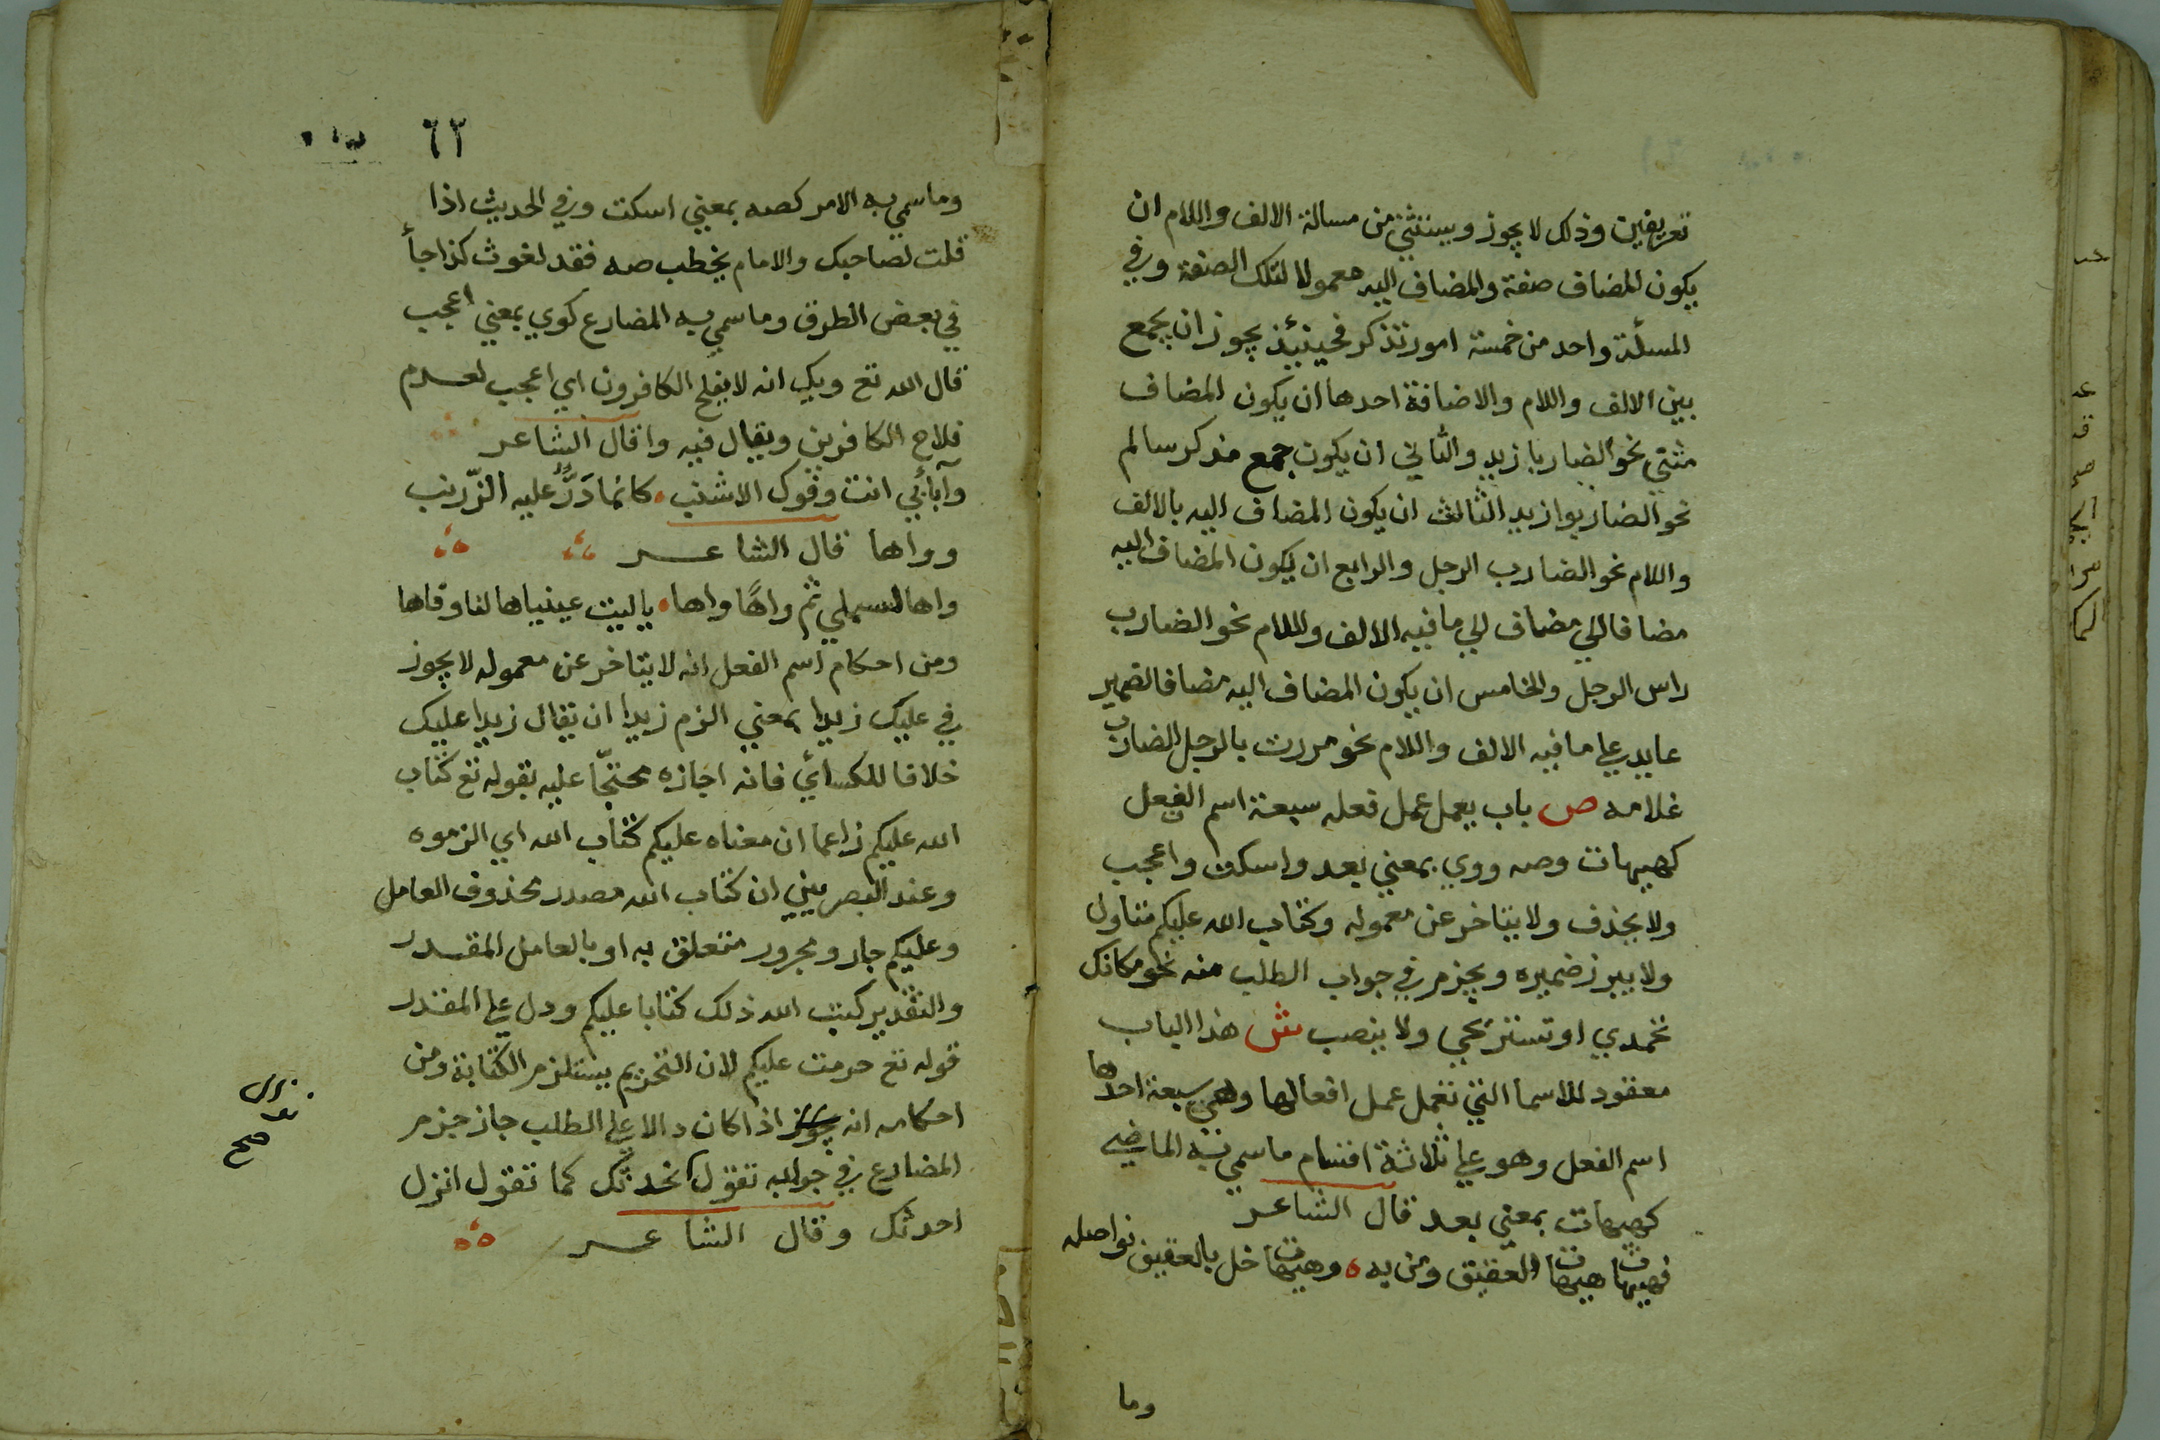 تعريفين وذلك لا يجوز ويستثني من مسالة الالف واللام ان
يكون المضاف صفة والمضاف اليه معمولا لتلك الصفة وفي
المسئلة واحد من خمسة امور تذكر فحينئذ يجوز ان يجمع
بين الالف واللام والاضافة احدها ان يكون المضاف
مثني نحو الضاربا زيد والثاني ان يكون جمع مذكر سالم
نحو الضاربوا زيد الثالث ان يكون المضاف اليه بالالف
واللام نحو الضارب الرجل والرابع ان يكون المضاف اليه
مضافا الي مضاف الي ما فيه الالف واللام نحو الضارب
راس الرجل والخامس ان يكون المضاف اليه مضافا لضمير
عايد علي ما فيه الالف واللام نحو مررت بالرجل الضارب
غلامه ص باب يعمل عمل فعله سبعة اسم الفعل
كهيهات وصه ووي بمعني بعد واسكت واعجب
ولا يحذف ولا يتاخر عن معموله وكتاب الله عليكم متاول
ولا يبرز ضميره ويجزم في جواب الطلب منه نحو مكانك
تحمدي او تستريحي ولا ينصب ش هذا الباب
معقود للاسما التي تعمل عمل افعالها وهي سبعة احدها
اسم الفعل وهو علي ثلاثة اقسام ما سمي به الماضي
كهيهات بمعني بعد قال الشاعر
فهيهات هيهات العقيق ومن به ه وهيهات خل بالعقيق نواصله
وما
٦٢
وما سمي به الامر كصه بمعني اسكت وفي الحديث اذا
قلت لصاحبك والامام يخطب صه فقد لغوت كذا جأ
في بعض الطرق وما سمي به المضارع كوي بمعني اعجب
قال الله تع ويك انه لا يفلح الكافرون اي اعجب لعدم
فلاح الكافرين ويقال فيه وا قال الشاعر
وآبأبي انت وفوك الاشنب ٠ كانما ذرّ عليه الزّرنب
وواها قال الشاعر
واها لسلمي ثم واهًا واها ٠ يا ليت عينياها لنا وفاها
ومن احكام اسم الفعل انه لا يتاخر عن معموله لا يجوز
في عليك زيدا بمعني الزم زيدا ان يقال زيدا عليك
خلافا للكسائي فانه اجازه محتجّا عليه بقوله تع كتاب
الله عليكم زاعما ان معناه عليكم كتاب الله اي الزموه
وعند البصريين ان كتاب الله مصدر محذوف العامل
وعليكم جار ومجرور متعلق به او بالعامل المقدر
والتقدير كتب الله ذلك كتابا عليكم ودل علي المقدر
قوله تع حرمت عليكم لان التحريم يستلزم الكتابة ومن
احكامه انه يجوز اذا كان دالا علي الطلب جاز جزم
المضارع في جوابه تقول نحدثك كما تقول انزل
احدثك وقال الشاعر
نزال
صح